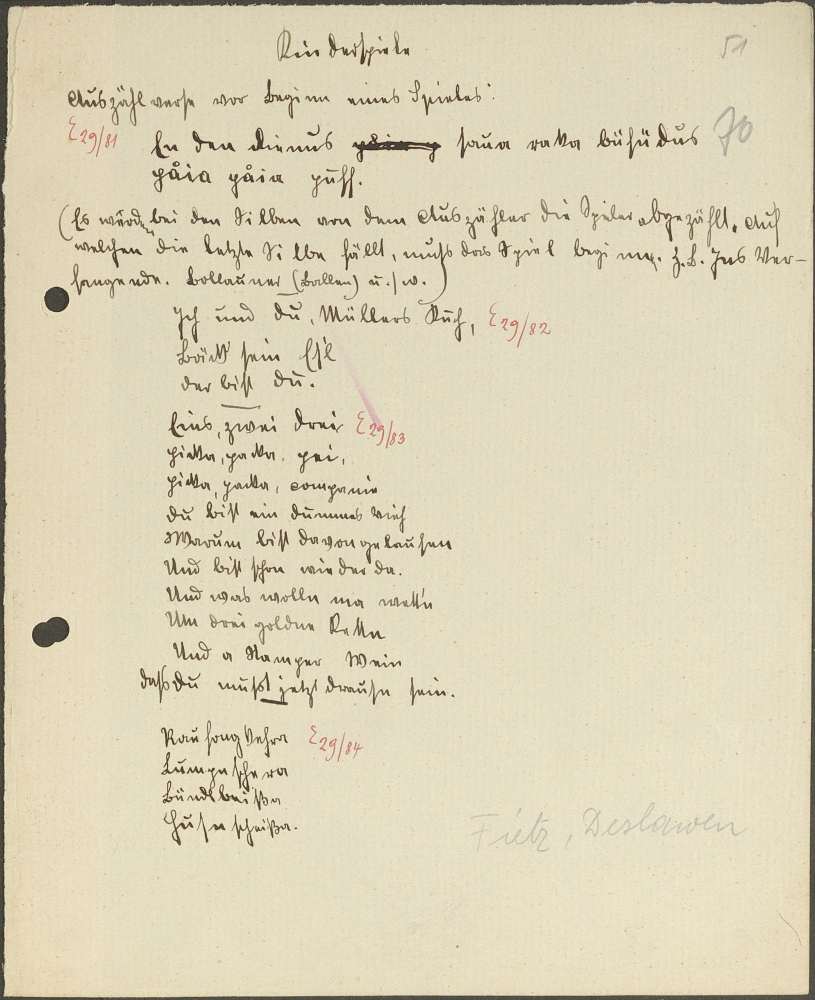 Kinderspiele
51
Auszählverse vor Beginn eines Spieles:
E29/81
En den dienus saua raka bühüdus
70
påia påia puff.
(Es werd. bei den Silben von dem Auszähler die Spieler abgezählt. Auf
welchen die letzte Silbe fällt, muß das Spiel beginnen. z.B. Ins Ver-
fangende. Bollauner (Ballen) u.s.w.)
Ich und du, Müllers Kuh, E29/82
Bäck' sein Es'l
der bist du.
Eins, zwei drei E29/83
picka, packa, pei,
picka, packa, companie
du bist ein dummes Vieh
Warum bist davongelaufen
Und bist schon wieder da.
Und was wolln ma wett'n
Um drei goldne Kettn
Und a Stamper Wein
daß du mußt jetzt drausn sein.
Raufangkehra E29/84
Lumpnschera
Bündlbeißa
Husnscheißa.
Fietz, Deslawen